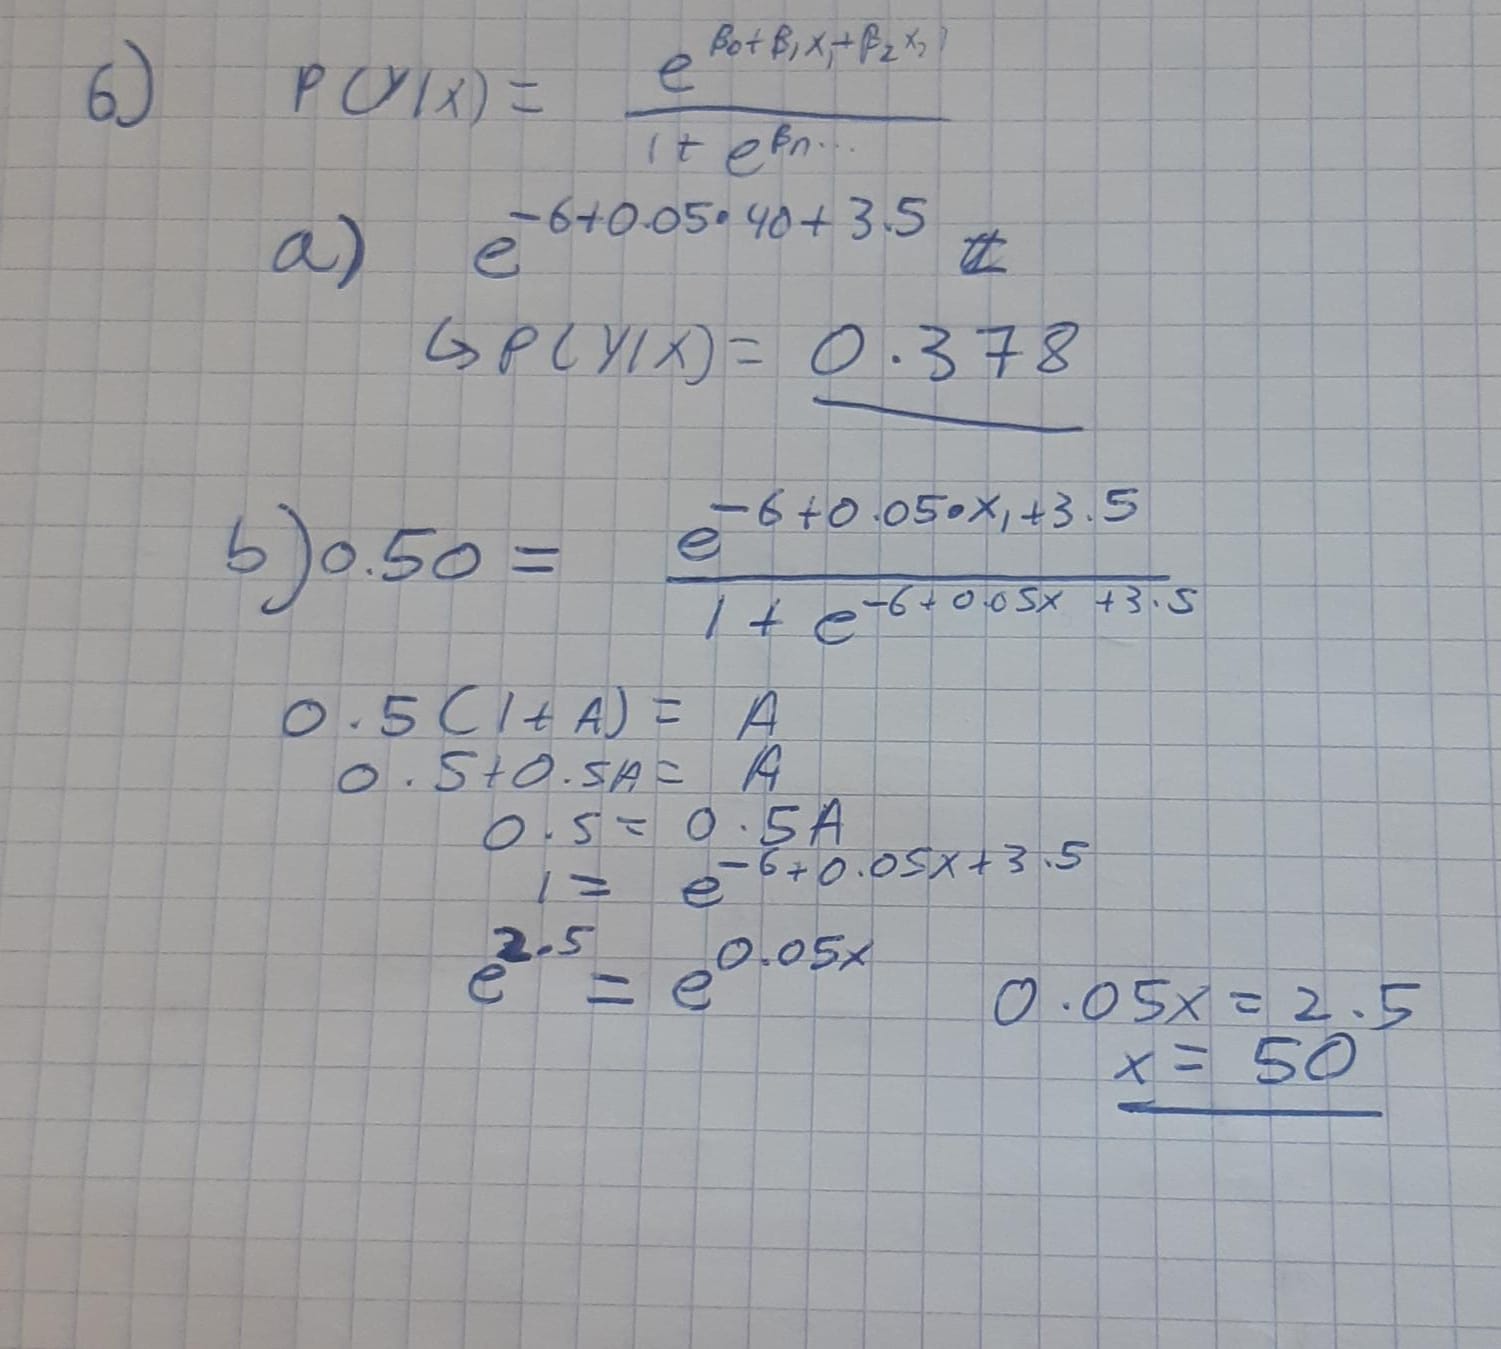 6) P(Y|X) = e^{β₀+β₁x₁+β₂x₂} / 1+e^{βn...}
a) e^{-6+0.05•40+3.5}
↳ P(Y|X) = 0.378
b) 0.50 = e^{-6+0.05•x₁+3.5} / 1+e^{-6+0.05x+3.5}
0.5(1+A) = A
0.5+0.5A = A
0.5 = 0.5A
1 = e^{-6+0.05x+3.5}
e^{2.5} = e^{0.05x}
0.05x = 2.5
x = 50